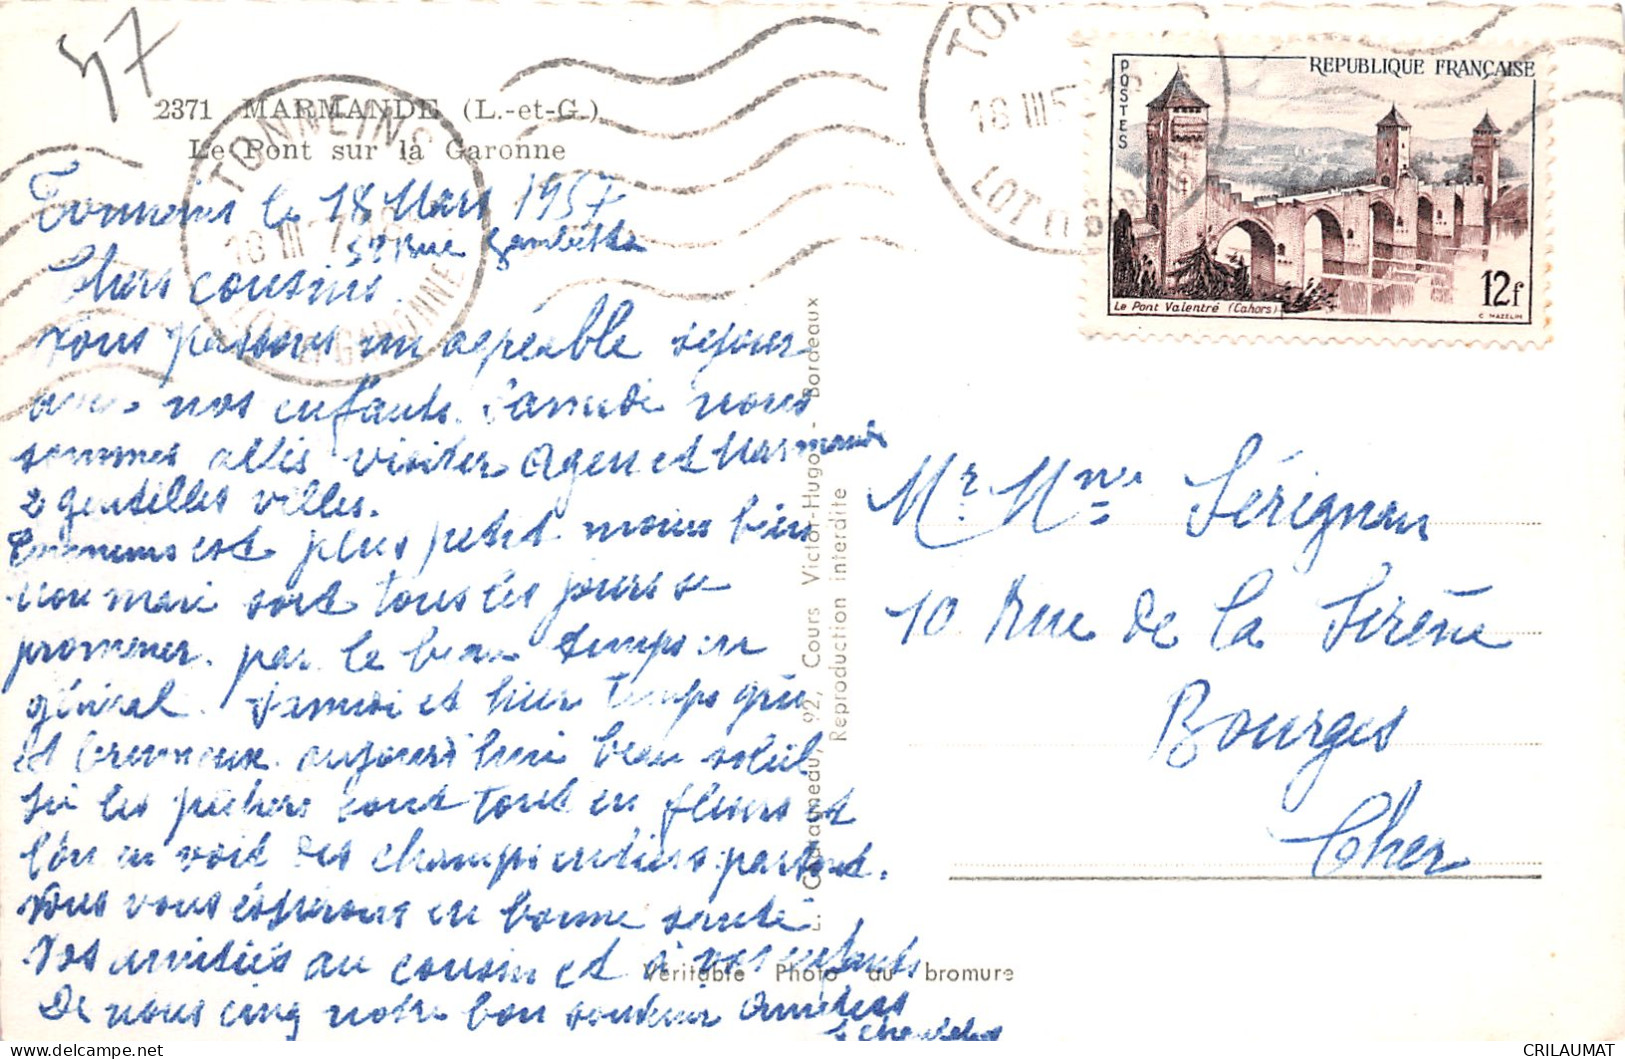 47
2371 MARMANDE (L.-et-G.)
Le Pont sur la Garonne
Tonneins le 18 Mars 1957
rue Gambetta
Chers cousins
nous passons un agréable séjour
avec nos enfants. Samedi nous
sommes allés visiter Agen et Marmande
2 gentilles villes.
Tonneins est plus petit moins bien
mon mari sort tous les jours se
promener. par le beau temps en
général. Samedi et hier temps gris
et brumeux. aujourd'hui beau soleil
Ici les pêchers sont tout en fleurs et
l'on en voit des champs entiers partout.
Nous vous espérons en bonne santé
Nos amitiés au cousin et à vos enfants
De nous cinq notre bon souvenir Amitiés
TONNEINS
18 III 57
LOT ET GARONNE
TONNEINS
18 III 57
LOT ET GARONNE
POSTES
REPUBLIQUE FRANÇAISE
Le Pont Valentré (Cahors)
12f
C. MAZELIN
92, Cours Victor-Hugo - Bordeaux
Reproduction interdite
Véritable Photo au bromure
Mr Mme Sérignan
10 Rue de la Sirène
Bourges
Cher
delcampe.net
CRILAUMAT